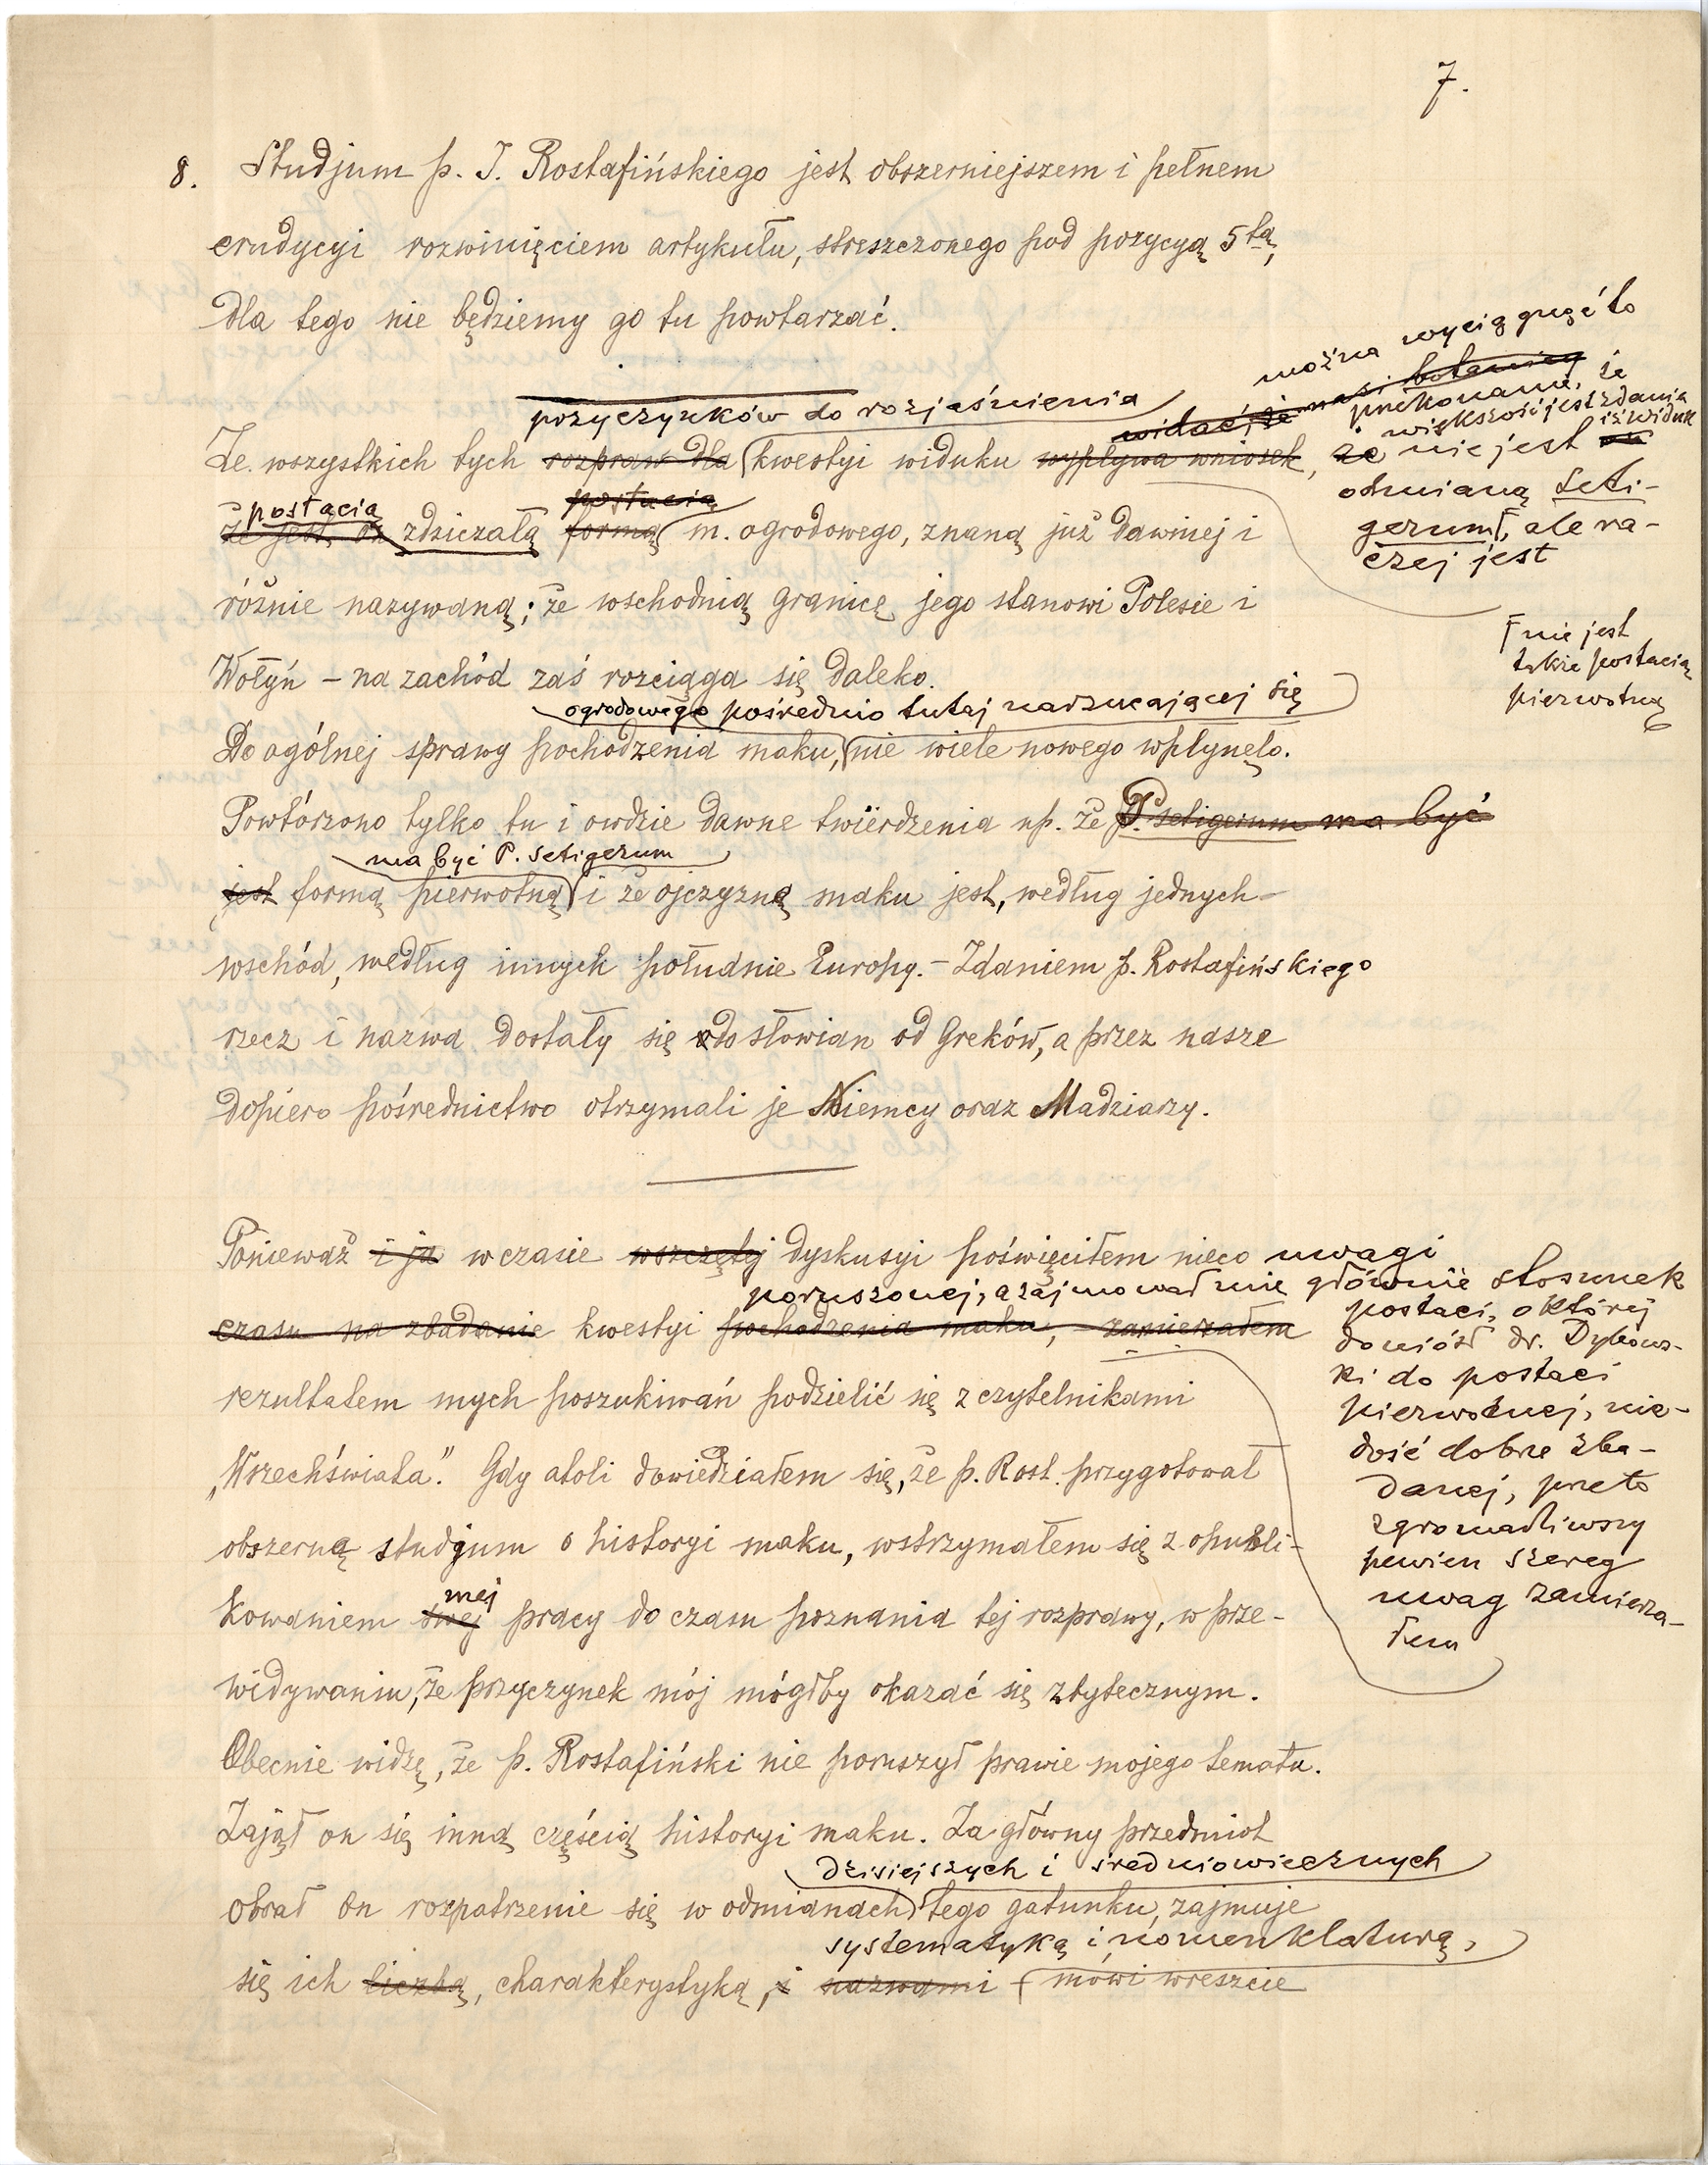 7.
8. Studjum p. J. Rostafińskiego jest obszerniejszem i pełnem
erudycyi rozwinięciem artykułu, streszczonego pod pozycyą 5tą,
dla tego nie będziemy go tu powtarzać.
można wyciągnąć to
widać, że nasi botanicy
przekonanie, że
pożyczynków do rozjaśnienia
większość jest zdania
iż widuk
Ze wszystkich tych rozpraw dla kwestyi widuku wypływa wniosek, że nie jest on
odmianą seti-
gerum, ale ra-
czej jest
postacią
postacią
że jest on zdziczałą formą m. ogrodowego, znaną już dawniej i
różnie nazywaną; że wschodnią granicę jego stanowi Polesie i
nie jest
także postacią
pierwotną
Wołyń – na zachód zaś rozciąga się daleko.
ogrodowego pośrednio tutaj narzucającej się
Do ogólnej sprawy pochodzenia maku, nie wiele nowego wpłynęło.
Powtórzono tylko tu i owdzie dawne twierdzenia np. że P. setigerum ma być
ma być P. setigerum
jest formą pierwotną i że ojczyzną maku jest, według jednych –
wschód, według innych południe Europy. – Zdaniem p. Rostafińskiego
rzecz i nazwa dostały się do słowian od Greków, a przez nasze
dopiero pośrednictwo otrzymali je Niemcy oraz Madziarzy.
Ponieważ i ja w czasie wszczętej dyskusyi poświęciłem nieco uwagi
poruszonej, a zajmował mnie głównie stosunek
czasu na zbadanie kwestyi pochodzenia maku, zamierzałem
postaci, o której
doniósł dr. Dybows-
ki do postaci
pierwotnej, nie-
dość dobrze zba-
danej, przeto
zgromadziwszy
pewien szereg
uwag zamierza-
łem
rezultatem mych poszukiwań podzielić się z czytelnikami
„Wszechświata”. Gdy atoli dowiedziałem się, że p. Rost. przygotował
obszerną studjum o historyi maku, wstrzymałem się z opubli-
mej
kowaniem swej pracy do czasu poznania tej rozprawy, w prze-
widywaniu, że przyczynek mój mógłby okazać się zbytecznym.
Obecnie widzę, że p. Rostafiński nie poruszył prawie mojego tematu.
Zajął on się inną częścią historyi maku. Za główny przedmiot
dzisiejszych i średniowiecznych
obrał on rozpatrzenie się w odmianach tego gatunku, zajmuje
systematyką i nomenklaturą,
się ich liczbą, charakterystyką, i nazwami mówi wreszcie